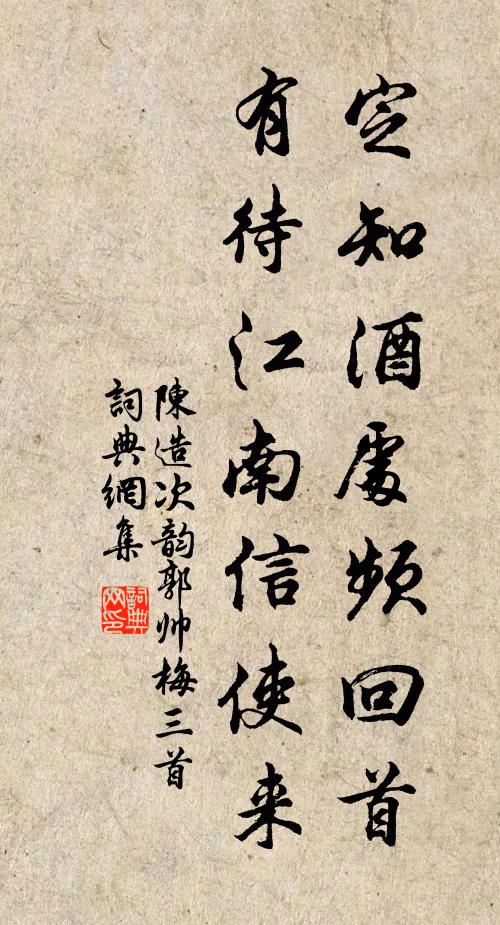 定知酒處頻回首
有待江南信使来
陳造次韵郭帅梅三首
詞典網集
詞典网印